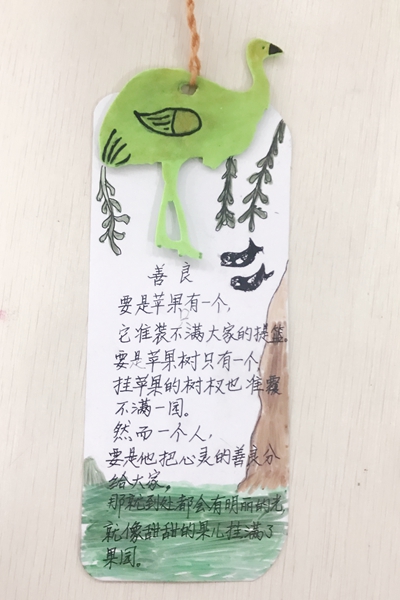 善良
要是苹果有一个,
它准装不满大家的提篮。
要是苹果树只有一个
挂苹果的树杈也准覆
不满一园。
然而一个人,
要是他把心灵的善良分
给大家,
那就到处都会有明丽的光,
就像甜甜的果儿挂满了
果园。